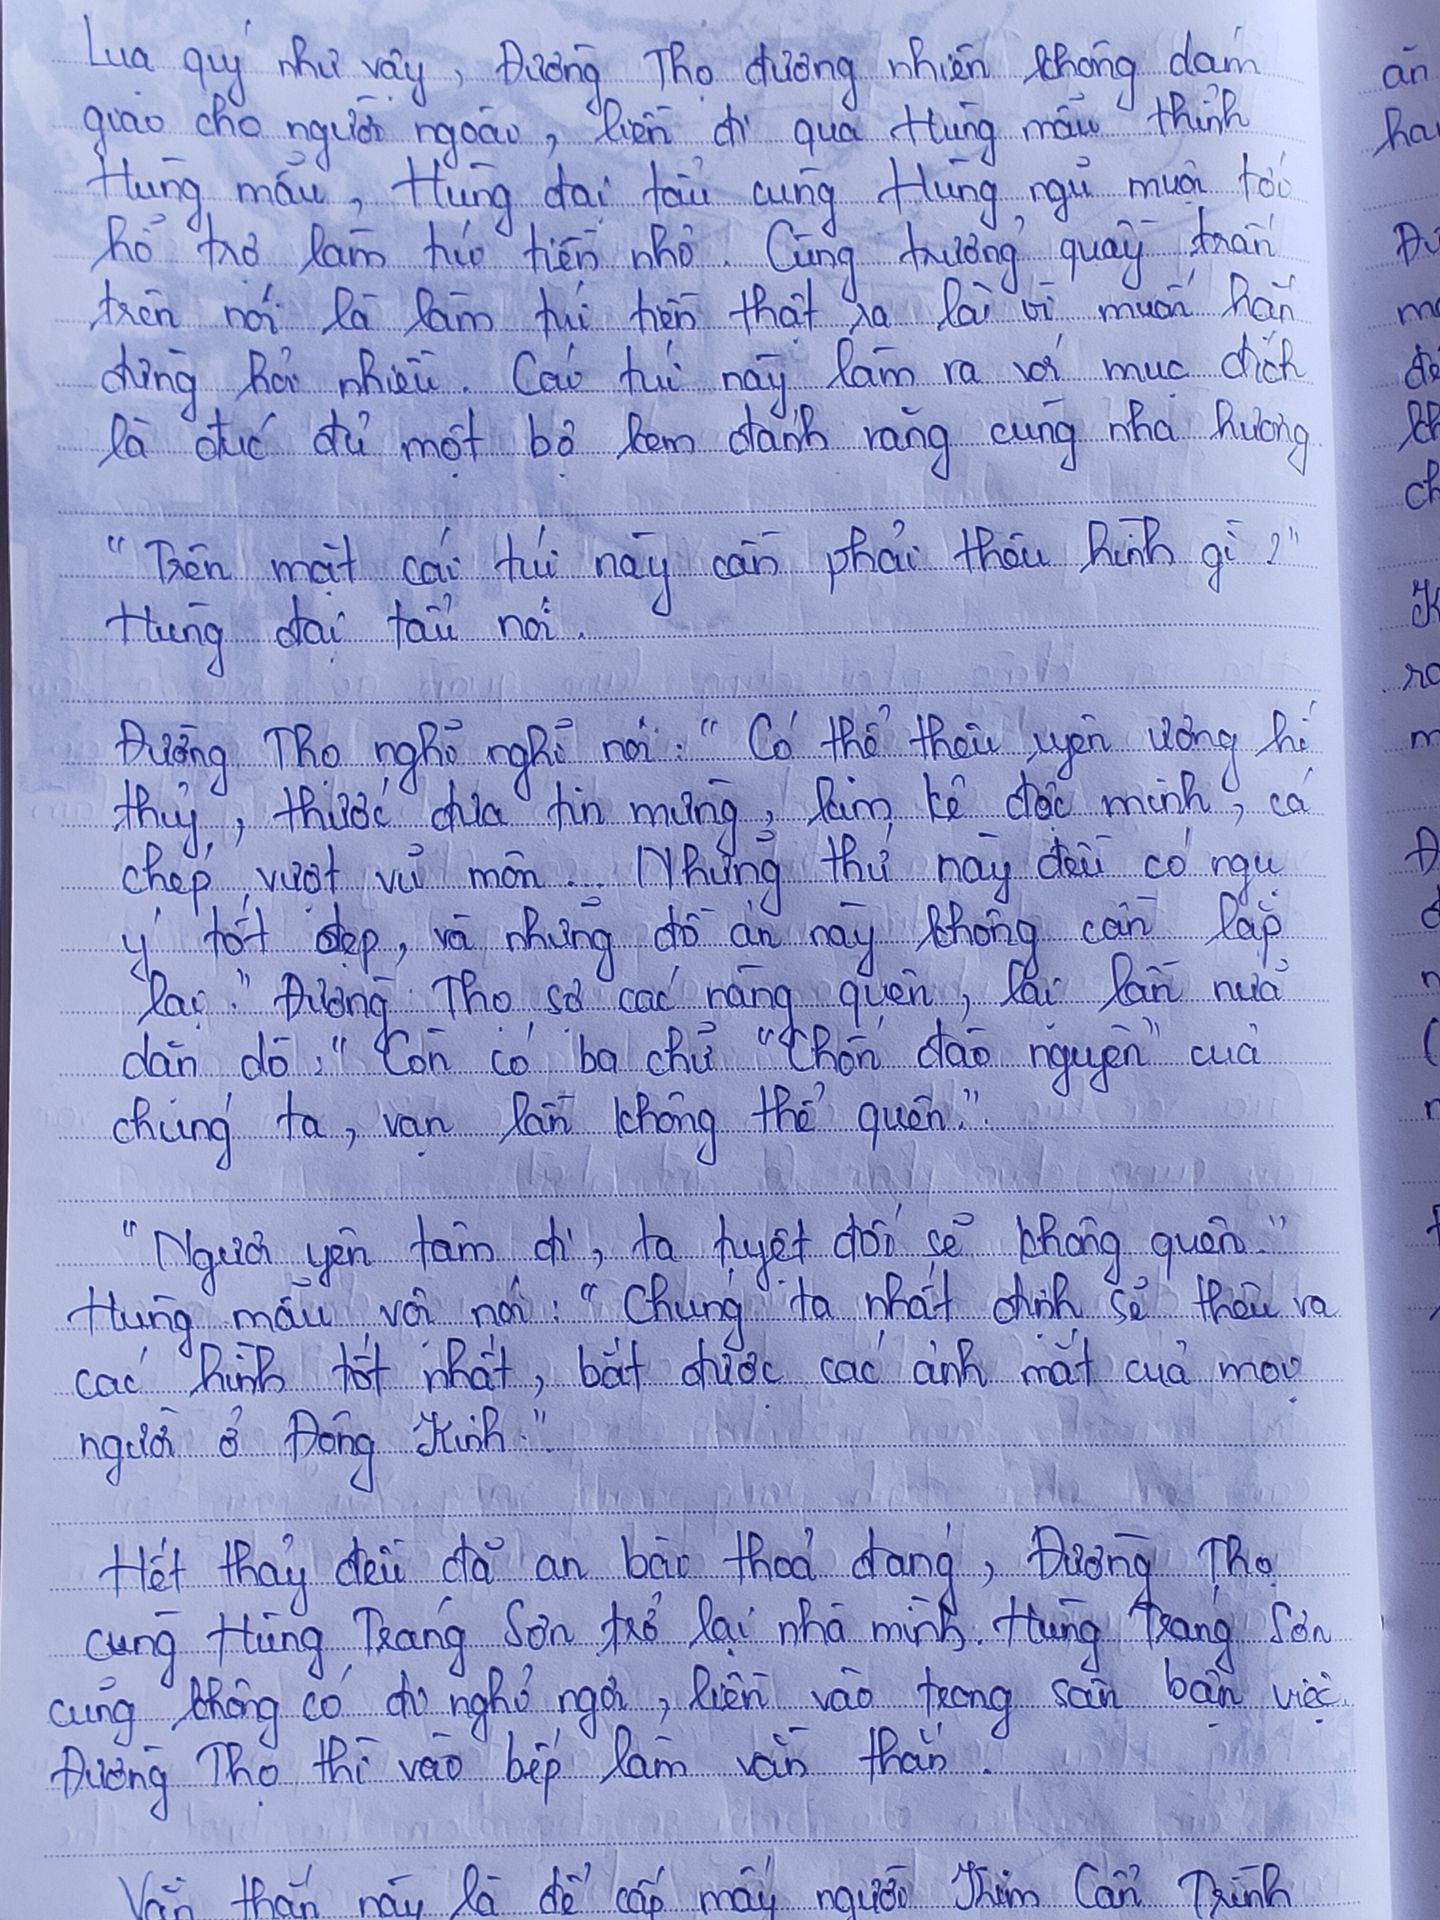 Lụa quý như vậy, Đường Thọ đương nhiên không dám
giao cho người ngoài, liền đi qua Hùng mẫu thỉnh
Hùng mẫu, Hùng đại tẩu cùng Hùng ngũ muội tới
hỗ trợ làm túi tiền nhỏ. Cùng trưởng quầy trần
trên nói là làm túi tiền thật ra là vì muốn hắn
đừng hỏi nhiều. Cái túi này làm ra với mục đích
là đúc đủ một bộ kem đánh răng cùng nhã hương
"Trên mặt cái túi này cần phải thêu hình gì?"
Hùng đại tẩu nói.
Đường Thọ nghĩ nghĩ nói: "Có thể thêu uyên ương hí
thủy, thước đưa tin mừng, kim kê độc minh, cá
chép vượt vũ môn... Những thứ này đều có ngụ
ý tốt đẹp, và những đồ án này không cần lặp
lại." Đường Thọ sợ các nàng quên, lại lần nữa
dặn dò: "Còn có ba chữ "Chốn đào nguyên" của
chúng ta, vạn lần không thể quên."
"Ngươi yên tâm đi, ta tuyệt đối sẽ không quên."
Hùng mẫu vội nói: "Chúng ta nhất định sẽ thêu ra
các hình tốt nhất, bắt được các ánh mắt của mọi
người ở Đông Kinh."
Hết thảy đều đã an bài thoả đáng, Đường Thọ
cùng Hùng Tráng Sơn trở lại nhà mình. Hùng Tráng Sơn
cũng không có đi nghỉ ngơi, liền vào trong sân bận việc.
Đường Thọ thì vào bếp làm vằn thắn.
Vằn thắn này là để cấp mấy người Thim Cẩn Trình
ăn